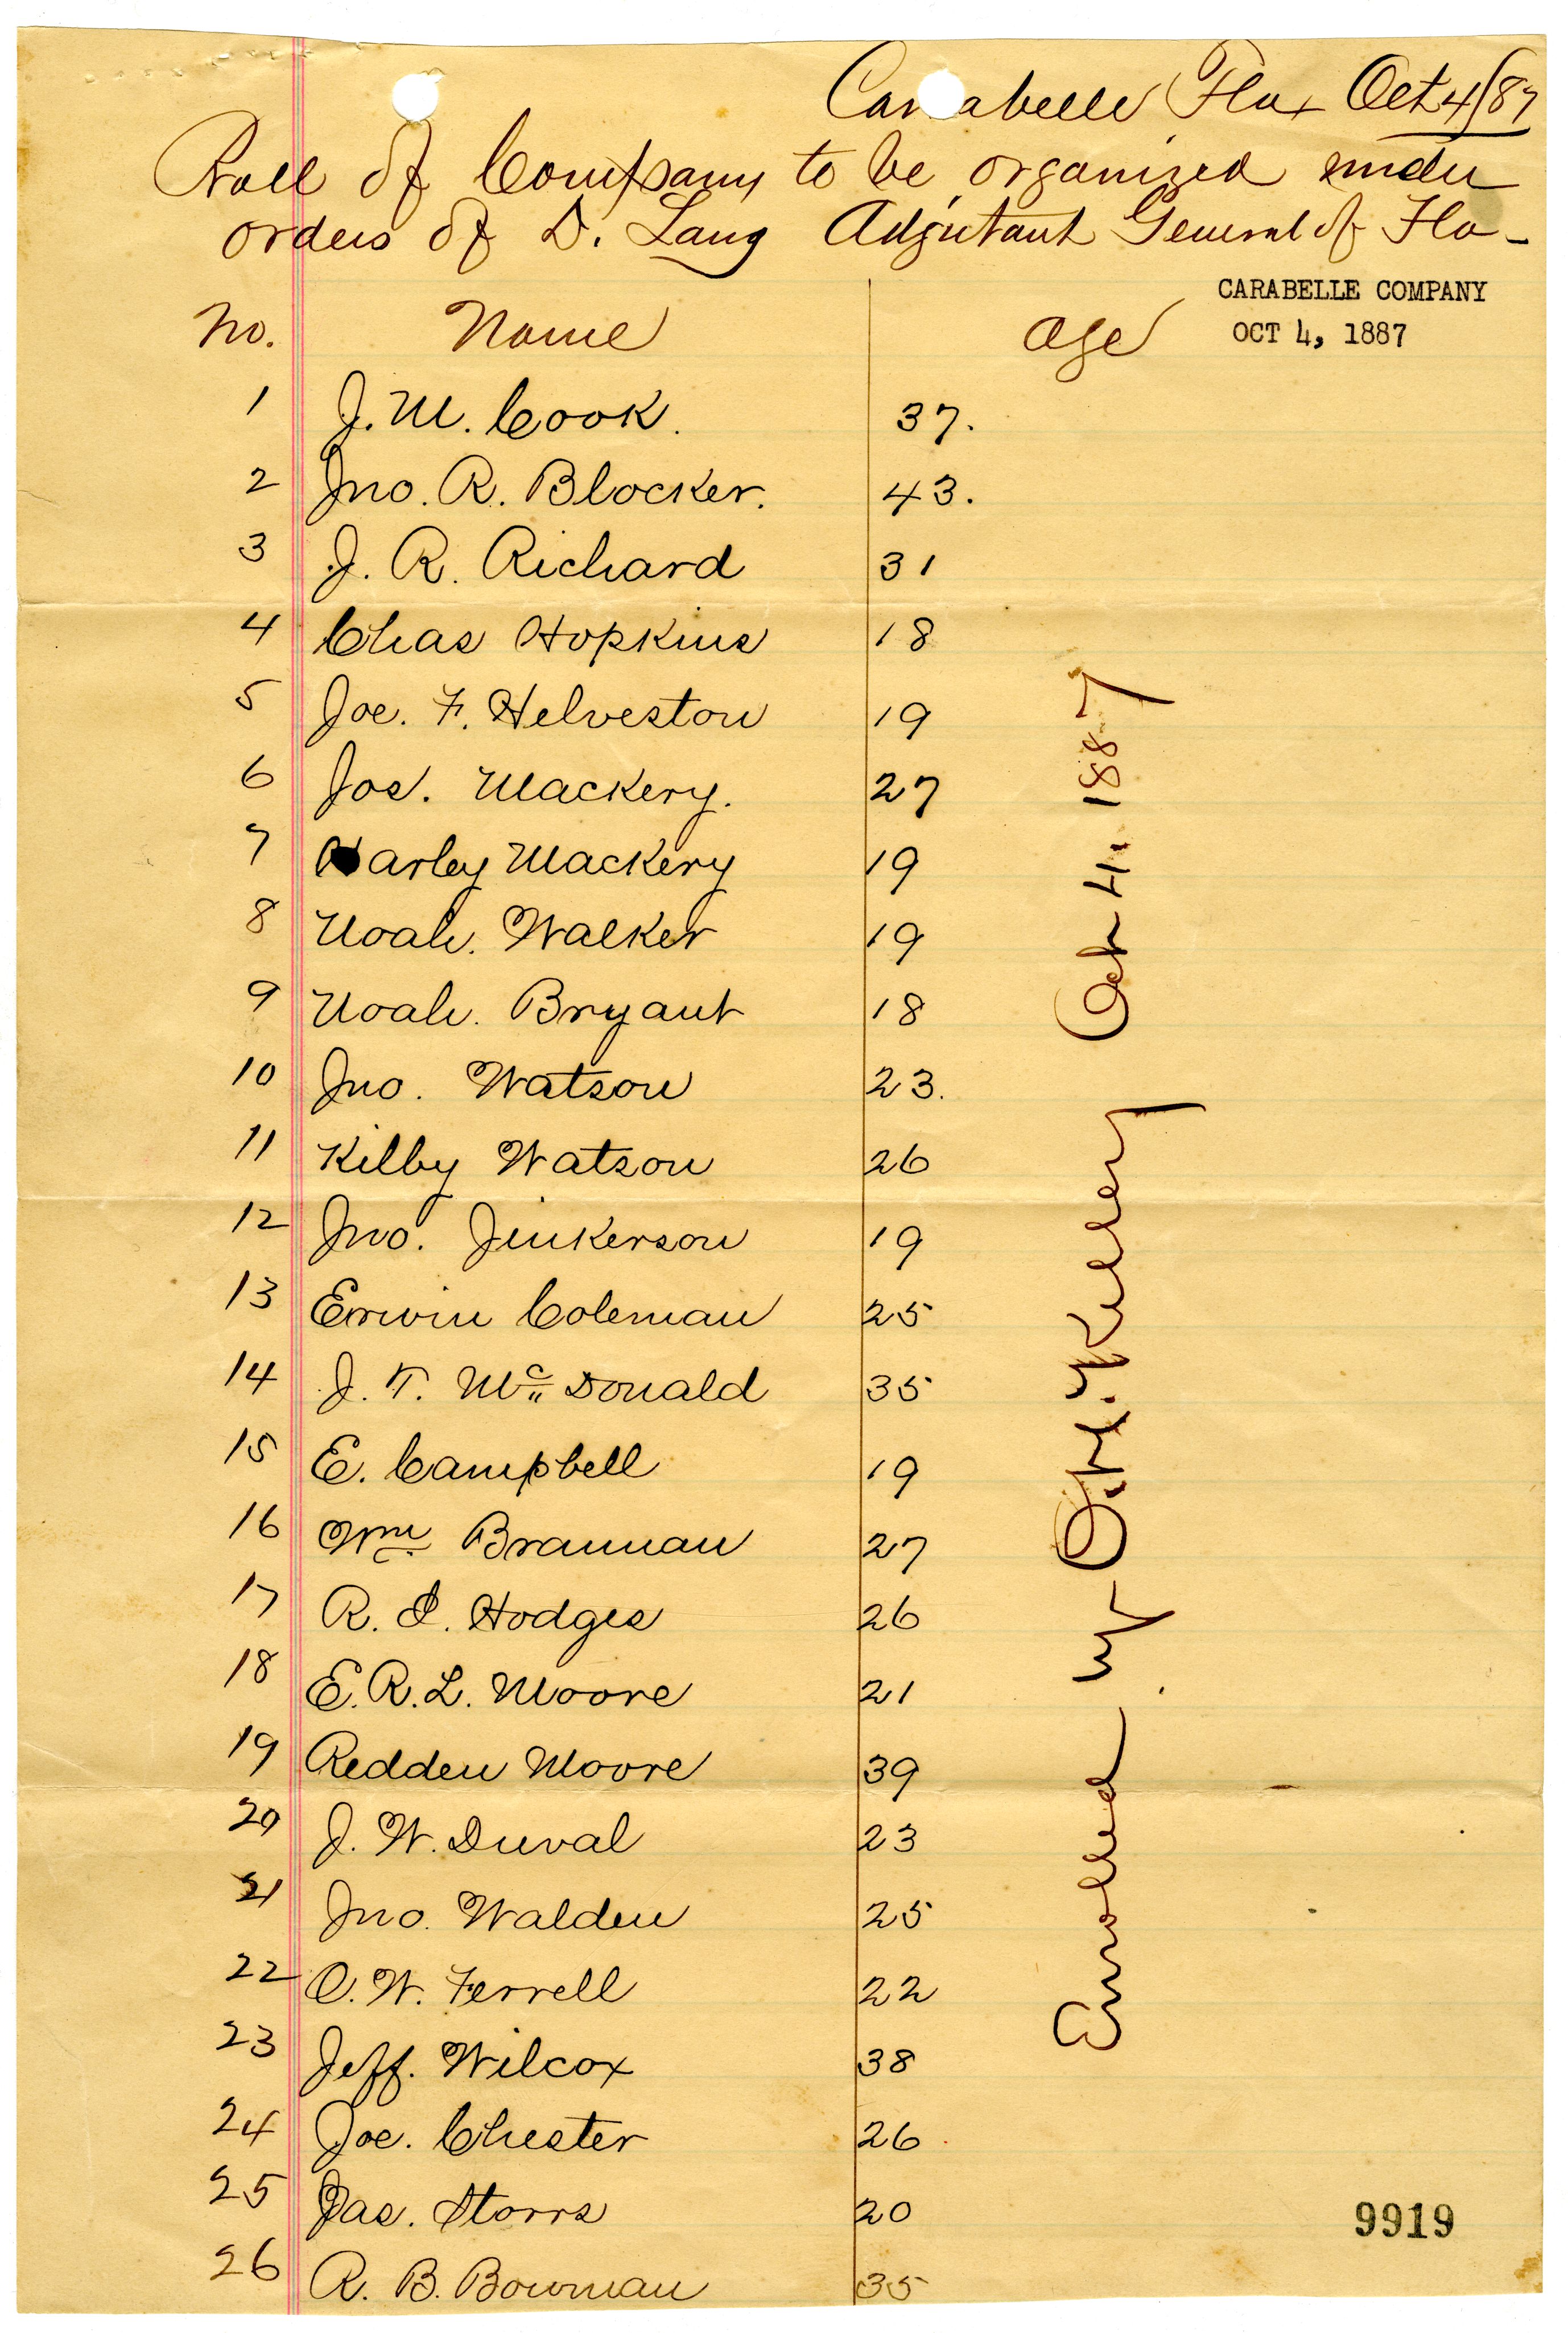 Carrabelle Fla Oct 4/87
Roll of Company to be organized under
orders of D. Lang Adjutant General of Fla-
CARABELLE COMPANY
OCT 4, 1887
No. Name age
1 J. M. Cook. 37.
2 Jno. R. Blocker. 43.
3 J. R. Richard 31
4 Chas Hopkins 18
5 Joe. F. Helveston 19
6 Jos. Mackery. 27
7 Harley Mackery 19
8 Noah. Walker 19
9 Noah. Bryant 18
10 Jno. Watson 23.
11 Kilby Watson 26
12 Jno. Jinkerson 19
13 Erwin Coleman 25
14 J. T. Mc Donald 35
15 E. Campbell 19
16 Wm Brannan 27
17 R. I. Hodges 26
18 E. R. L. Moore 21
19 Redden Moore 39
20 J. W. Duval 23
21 Jno. Walden 25
22 O. W. Ferrell 22
23 Jeff. Wilcox 38
24 Joe. Chester 26
25 Jas. Storrs 20
26 R. B. Bowman 35
Enrolled by O. H. Kelley Oct 4. 1887
9919